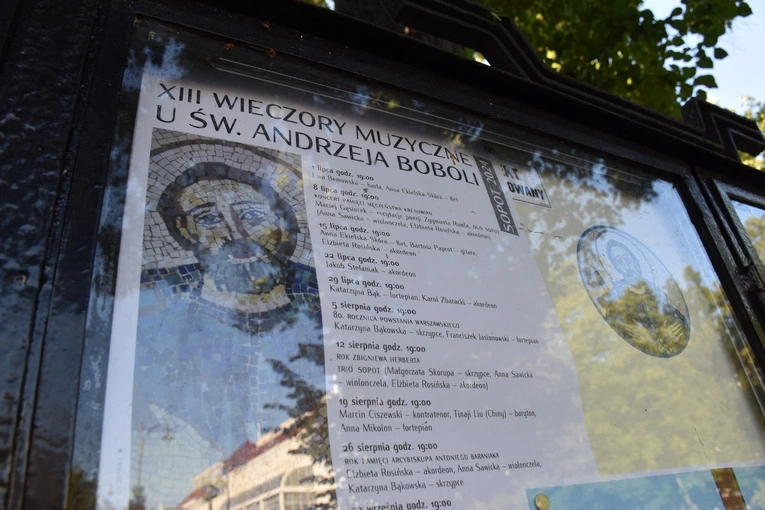 XIII WIECZORY MUZYCZNE
U ŚW. ANDRZEJA BOBOLI
SOPOT 2024
1 lipca godz. 19:00
Ewa Benowska – harfa, Anna Ekielska-Skóra – flet
8 lipca godz. 19:00
KONCERT PAMIĘCI MĘCZEŃSTWA KRESOWIAN
Maciej Gąsiorek – recytacje poezji Zygmunta Rumla, DUO SOPOT
(Anna Sawicka – wiolonczela, Elżbieta Rosińska – akordeon)
15 lipca godz. 19:00
Anna Ekielska-Skóra – flet, Bartosz Paprot – gitara,
Elżbieta Rosińska – akordeon
22 lipca godz. 19:00
Jakub Stefaniak – akordeon
29 lipca godz. 19:00
Katarzyna Bąk – fortepian, Karol Zbaracki – akordeon
5 sierpnia godz. 19:00
80. ROCZNICA POWSTANIA WARSZAWSKIEGO
Katarzyna Bąkowska – skrzypce, Franciszek Jasionowski – fortepian
12 sierpnia godz. 19:00
ROK ZBIGNIEWA HERBERTA
TRIO SOPOT (Małgorzata Skorupa – skrzypce, Anna Sawicka
– wiolonczela, Elżbieta Rosińska – akordeon)
19 sierpnia godz. 19:00
Marcin Ciszewski – kontratenor, Tinaji Liu (Chiny) – baryton,
Anna Mikolon – fortepian
26 sierpnia godz. 19:00
ROK PAMIĘCI ARCYBISKUPA ANTONIEGO BARANIAKA
Elżbieta Rosińska – akordeon, Anna Sawicka – wiolonczela,
Katarzyna Bąkowska – skrzypce
września godz. 19:00